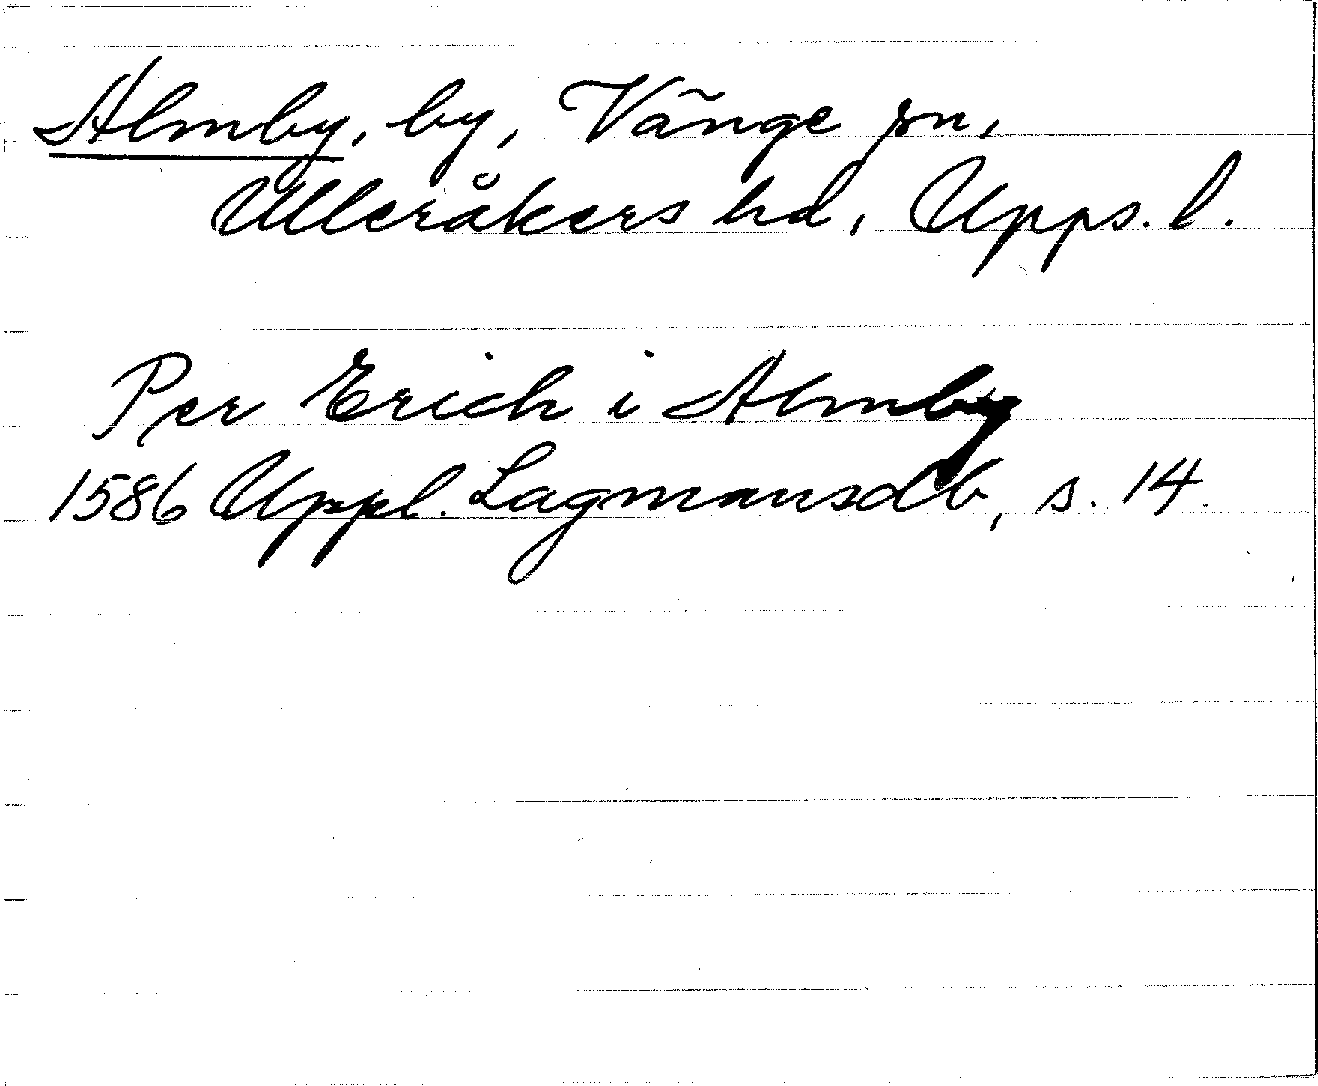 Almby, by, Vänge sn,
Ulleråkers hd, Upps. l.
Per Erich i Almby
1586 Uppl. Lagmansdb, s. 14.